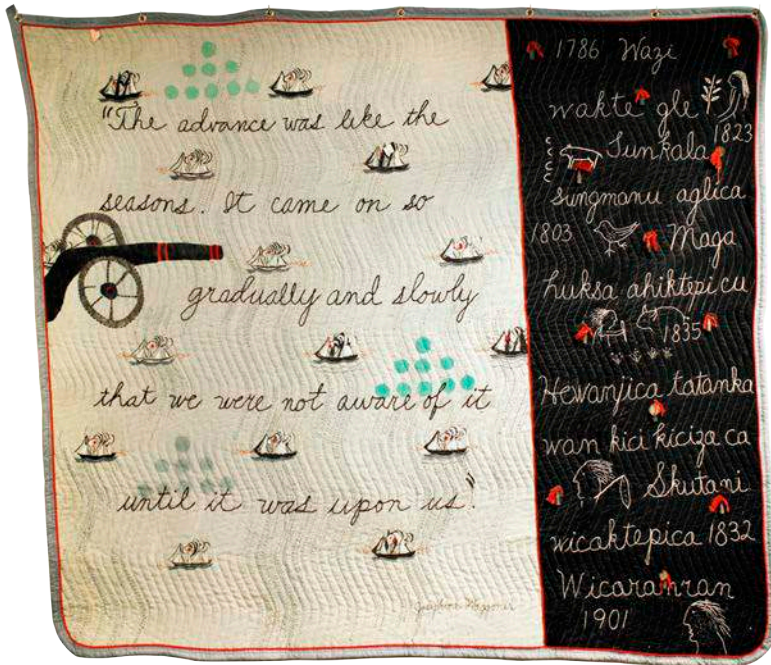 "The advance was like the
seasons. It came on so
gradually and slowly
that we were not aware of it
until it was upon us."
Josephine
1786 Wazi
wakte gle
1823
Sunkala
sungmanu aglica
1803 Maga
huksa ahiktepi cu
1835
Hewanjica tatanka
wan kici kiciza ca
Skutani
wicaktepica 1832
Wicaranran
1901